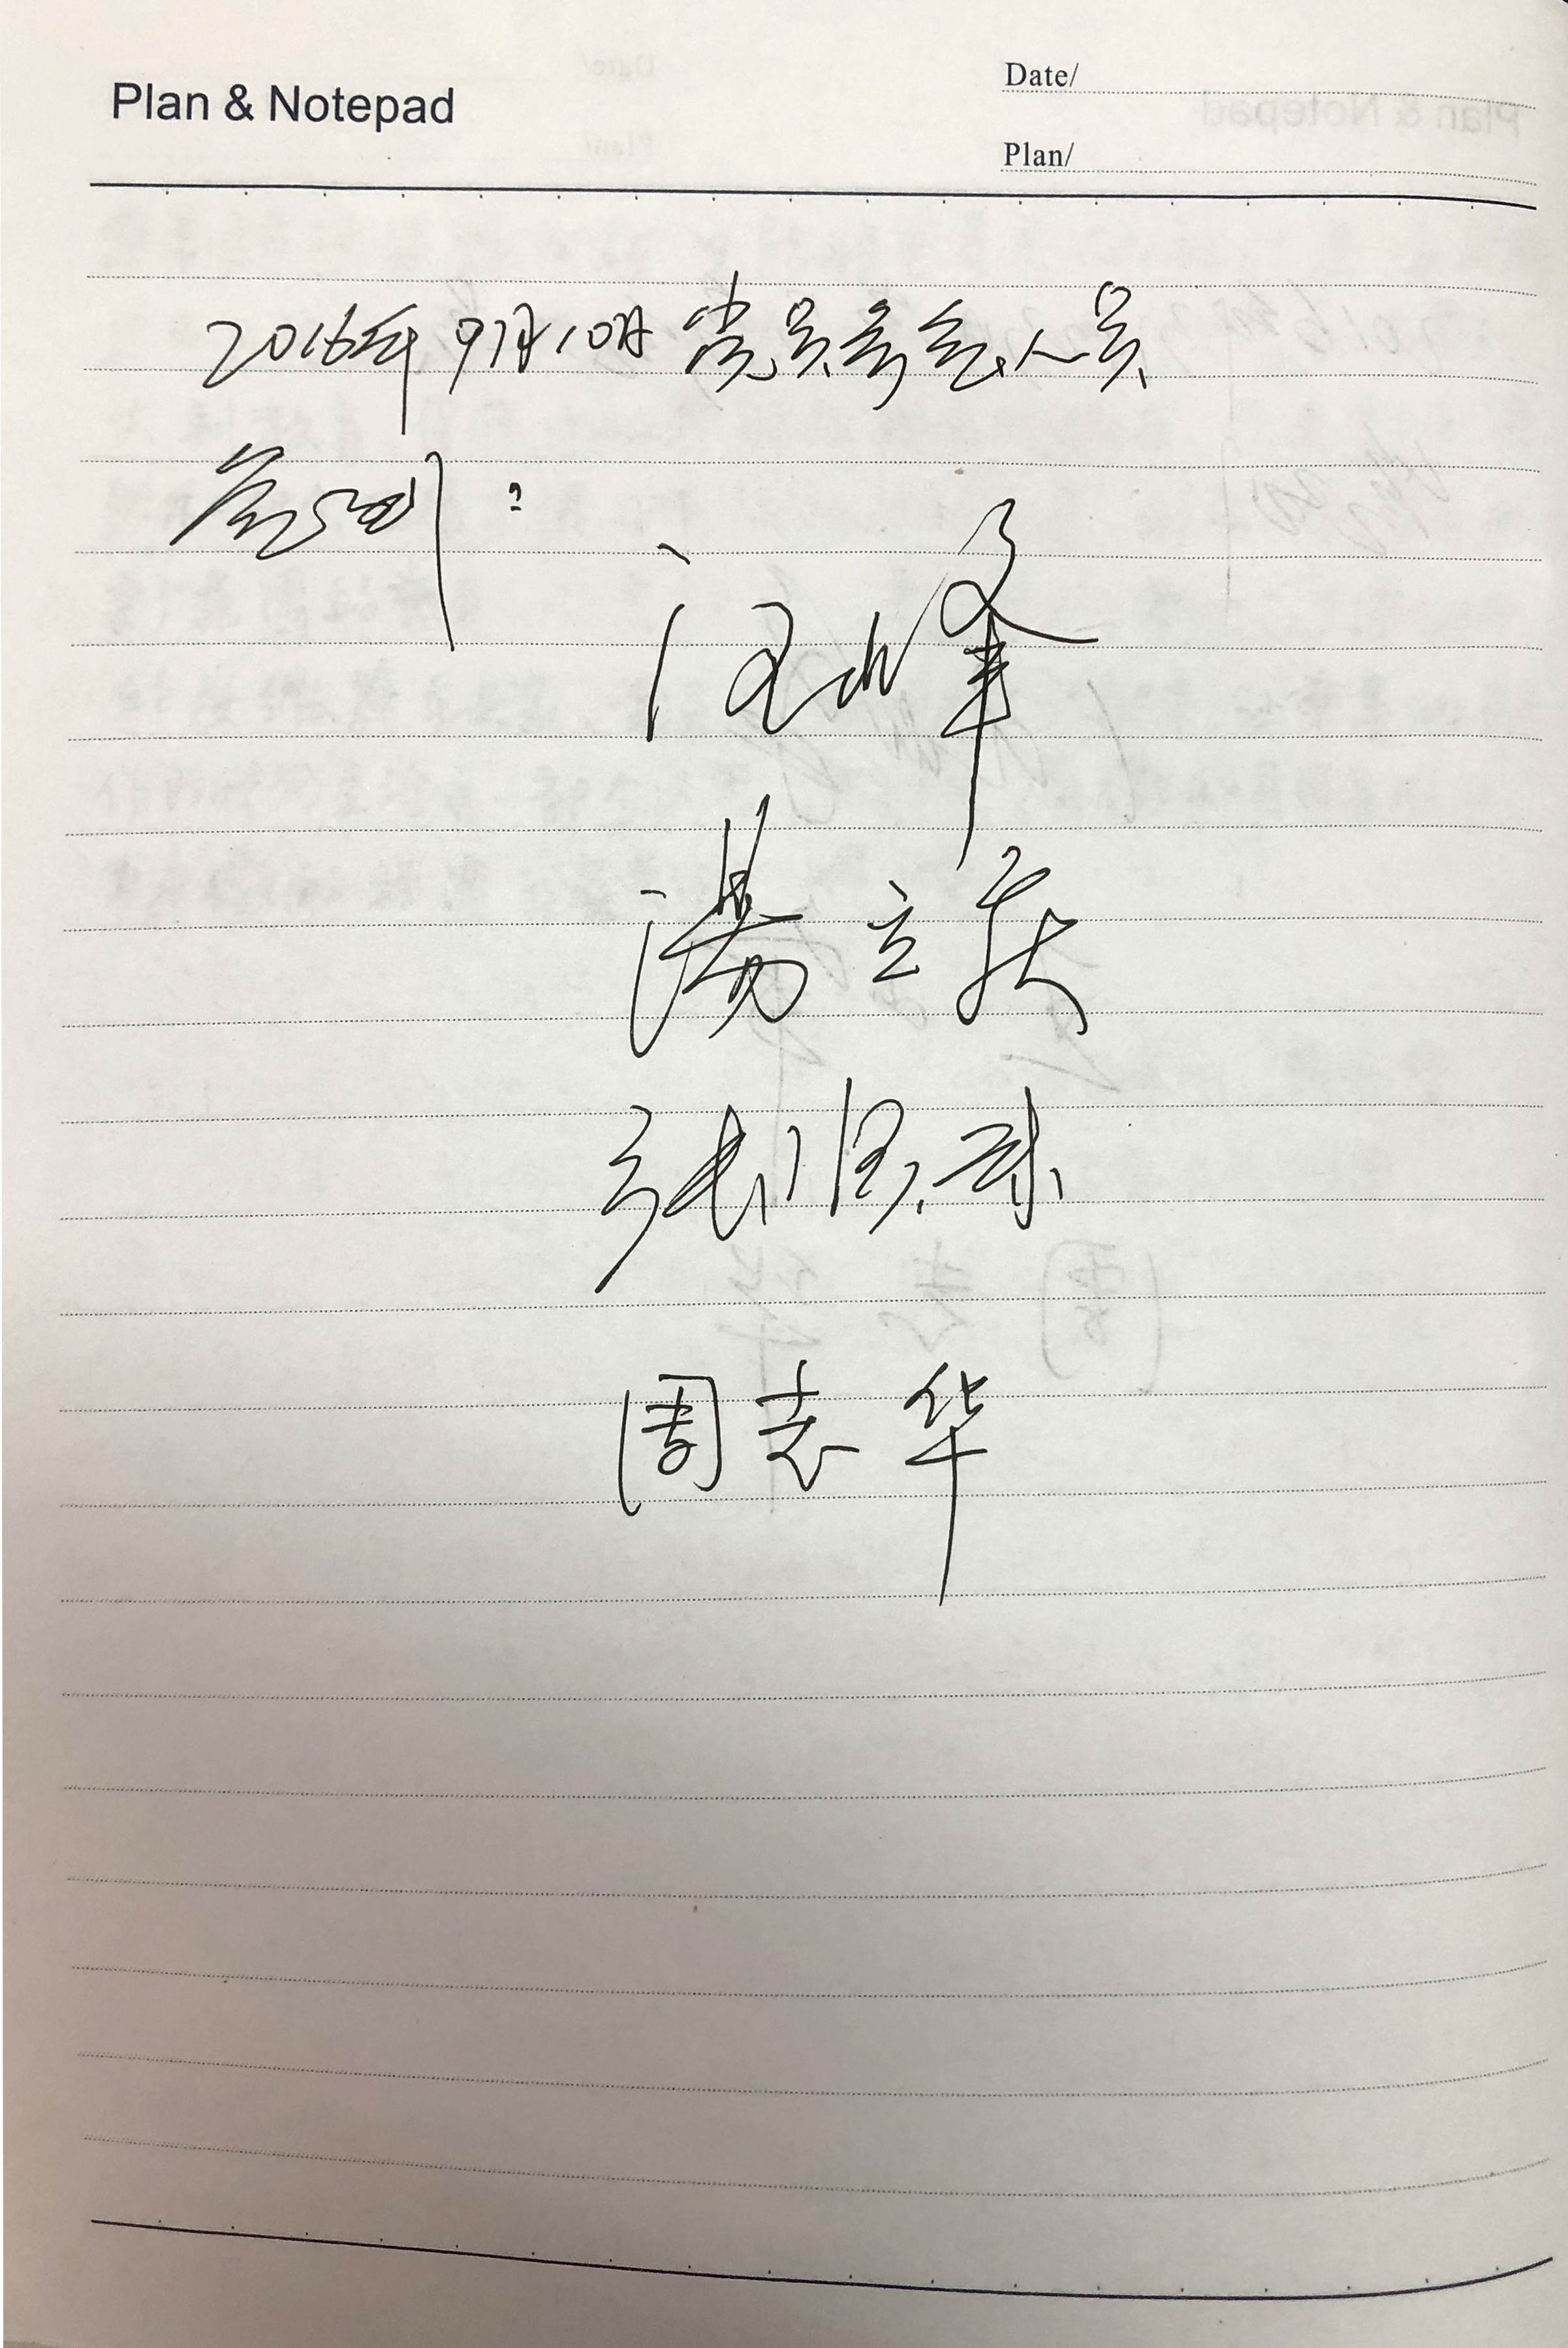 Plan & Notepad
Date/
Plan/
2016年9月10日党员参会人员
签到：
汪峰
汤立新
张国球
周志华